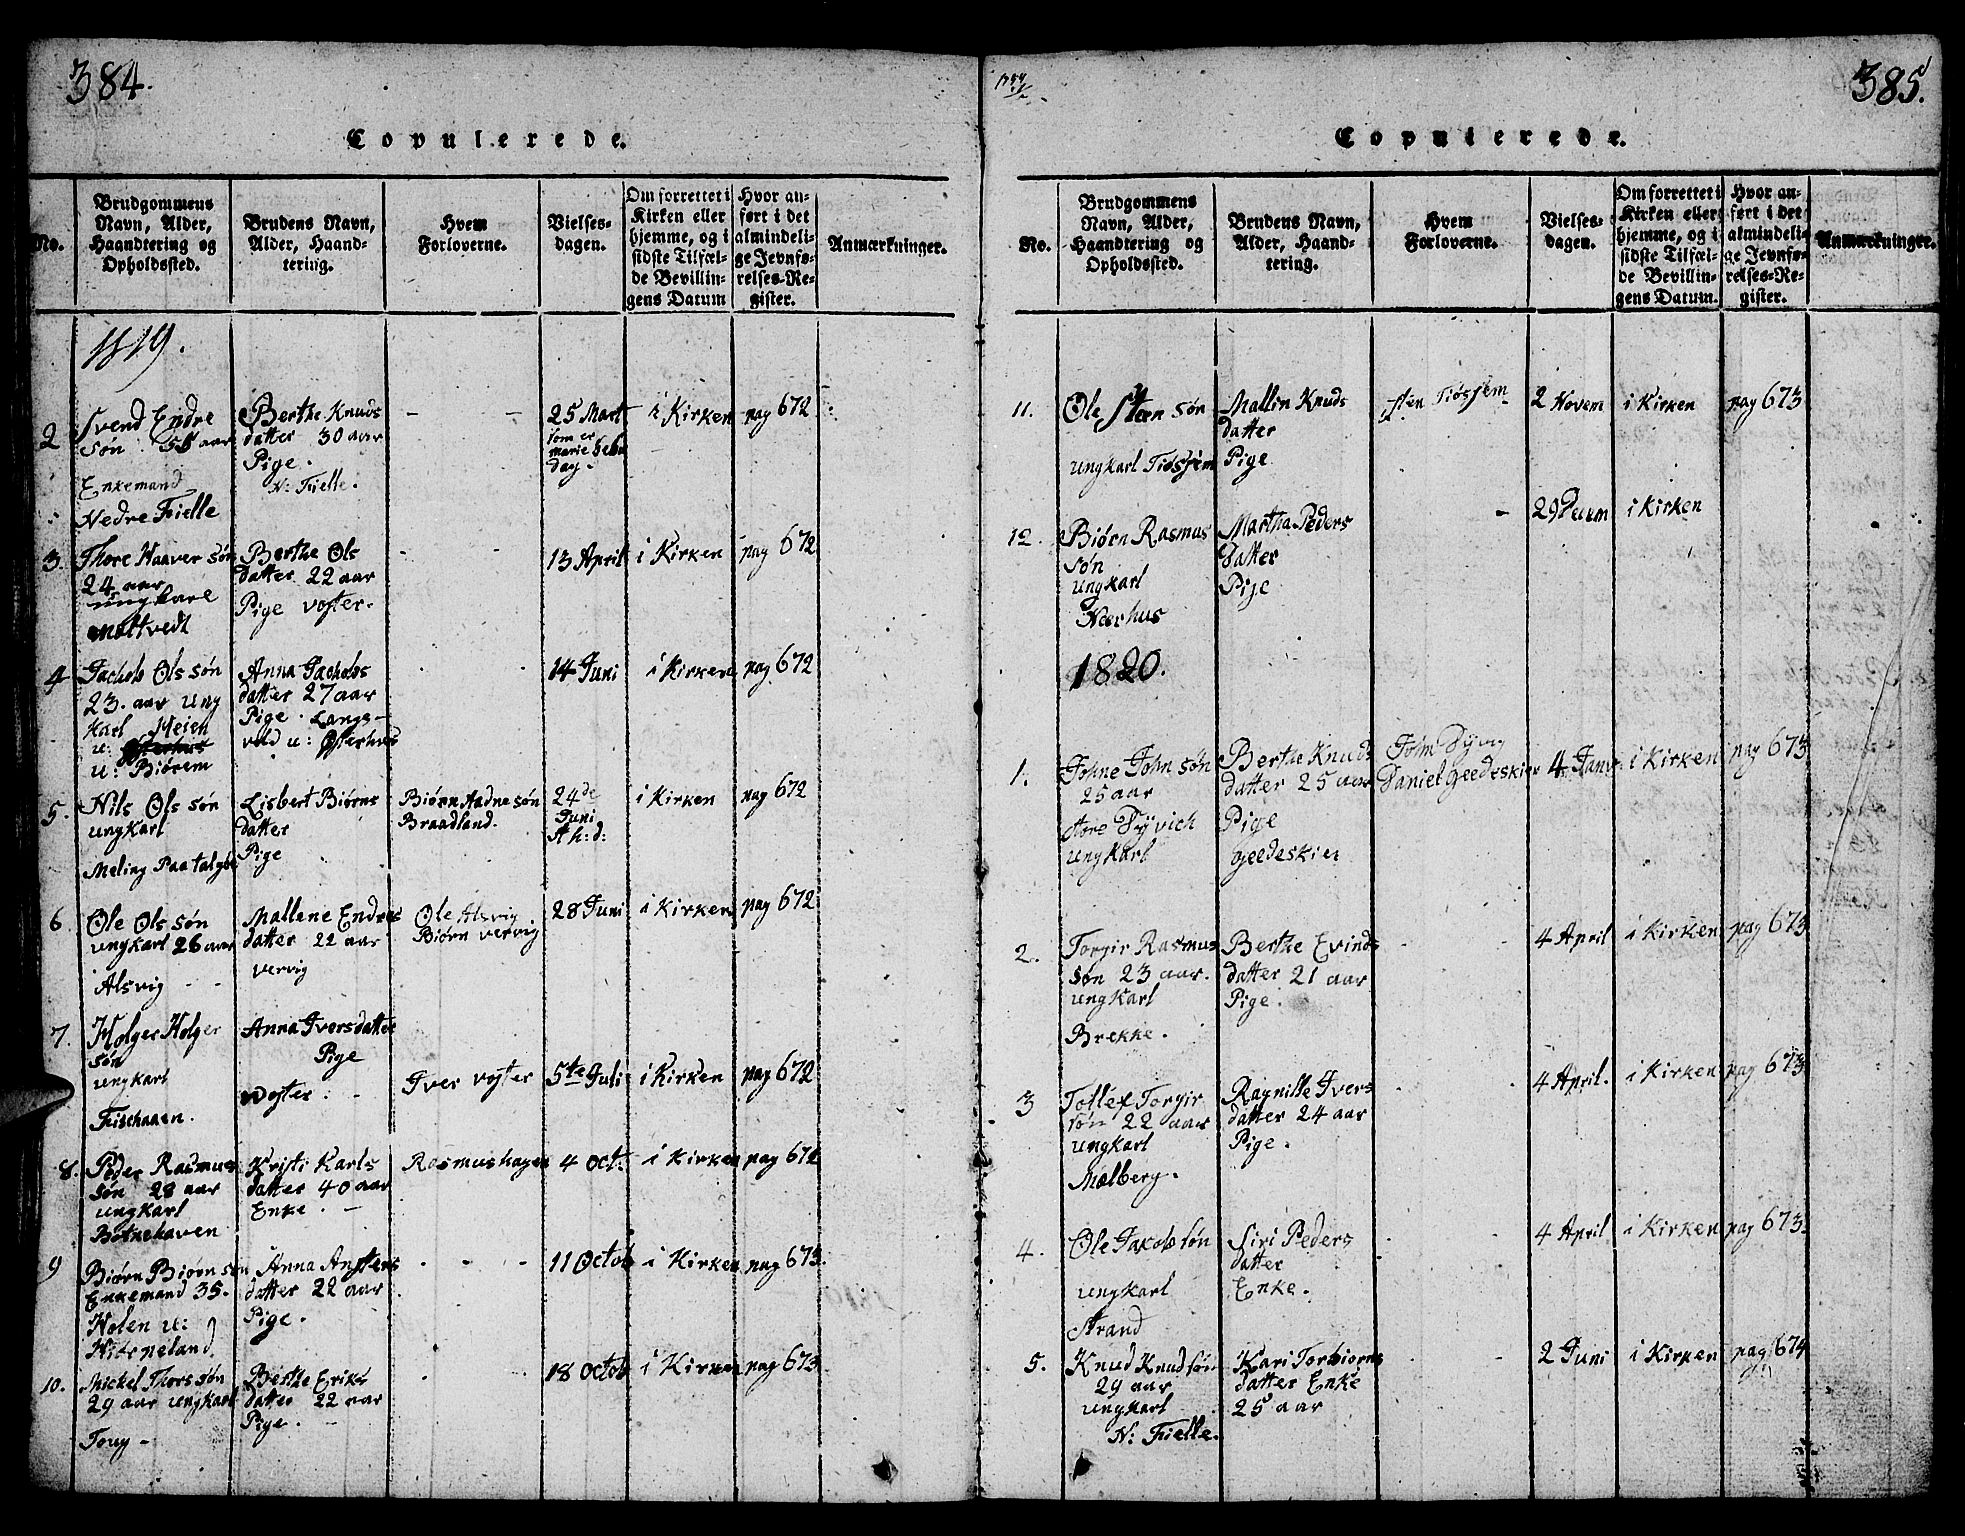 384.
Copulerede.
No.
Brudgommens
Navn, Alder,
Haandtering og
Opholdssted.
Brudens Navn,
Alder, Haand-
tering.
Hvem
Forloverne.
Vielses-
dagen.
Om forrettet i
Kirken eller
hjemme, og i
sidste Tilfæl-
de Bevillin-
gens Datum
Hvor an-
ført i det
almindeli-
ge Jevnfø-
relses-Re-
gister.
Anmærkninger.
1819.
2
Svend Endre
søn. 55 aar
Enkemand
Nedre Fielle
Berthe Knuds
datter 30 aar
Pige.
N: Fielle.
25 Mart
som er
marie
dag.
i Kirken
pag 672
3.
Thore Haaver søn
24 aar
ungkarl
Mattvedt
Berthe Ols
datter 22 aar
Pige voster.
13 April
i Kirken
pag 672
4
Jachob Ols søn
23. aar ung
karl Meien
u: Østerhus
u: Biørem
Anna Jachobs
datter 27 aar
Pige. Lange-
vold u: Østerhus
14 Juni
i Kirken
pag 672
5.
Nils Ols søn
ungkarl
Meling Paa talgøe
Lisbert Biørns
datter
Pige
Biørn Aadne søn
Braadland.
24de
Juni
A h: d:
i Kirken
pag 672
6
Ole Ols søn
ungkarl 26 aar
Alsvig
Mallene Endres
datter 22 aar
vervig
Ole Alsvig
Biørn vervig
28 Juni
i Kirken
pag 672
7
Holger Holger
søn
ungkarl
Fischaaen.
Anna Iversdatter
Pige
voster.
Iver voster
5te Juli
i Kirken
pag 672
8.
Peder Rasmus
søn 28 aar
ungkarl
Botnehaven
Kristi Karls
datter 40 aar
Enke.
Rasmus hagen
4 Oct:
i Kirken
pag 672
9
Biørn Biørn søn
Enkemand 35.
Holen u:
Hiorneland
Anna Anstens
datter 22 aar
Pige.
11 Octob
i Kirken
pag 673.
10.
Mickel Thors søn
29 aar ungkarl
Toug -
Berthe Eriks
datter 22 aar
Pige.
18 Octob
i Kirken
pag 673
385.
Copulerede.
No.
Brudgommens
Navn, Alder,
Haandtering og
Opholdssted.
Brudens Navn,
Alder, Haand-
tering.
Hvem
Forloverne.
Vielses-
dagen.
Om forrettet i
Kirken eller
hjemme, og i
sidste Tilfæl-
de Bevillin-
gens Datum.
Hvor an-
ført i det
almindeli-
ge Jevnfø-
relses-Re-
gister.
Anmærkninger.
11.
Ole Sten søn
ungkarl Tiøsjem
Mallin Knuds
datter
Pige
sten Tiøsjem
2 Novem
i Kirken
pag 673
12.
Biørn Rasmus
søn
ungkarl
Nærhus
Martha Peders
datter
Pige
29 Decem
i Kirken
1820.
1.
Johne John søn
25 aar
store Tyvich
ungkarl
Berthe Knuds
datter 25 aar
Pige
geedeskier
John Tyvig
Daniel geedeskier
4 Janv:
i Kirken
pag 673
2.
Torgir Rasmus
søn 23 aar.
ungkarl
Brekke.
Berthe Evinds
datter 21 aar
Pige.
4 April
i Kirken
pag 673
3
Tollef Torgir
søn 22 aar
ungkarl
Malberg.
Ragnille Ivers
datter 24 aar
Pige.
4 April.
i Kirken
pag 673
4.
Ole Jakob søn
ungkarl
Strand
Siri Peders
datter
Enke.
4 April
i Kirken
pag 673.
5.
Knud Knud søn
29 aar
ungkarl
N: Fielle.
Kari Torbiorns
datter Enke
25 aar
2 Juni
i Kirken
pag 674